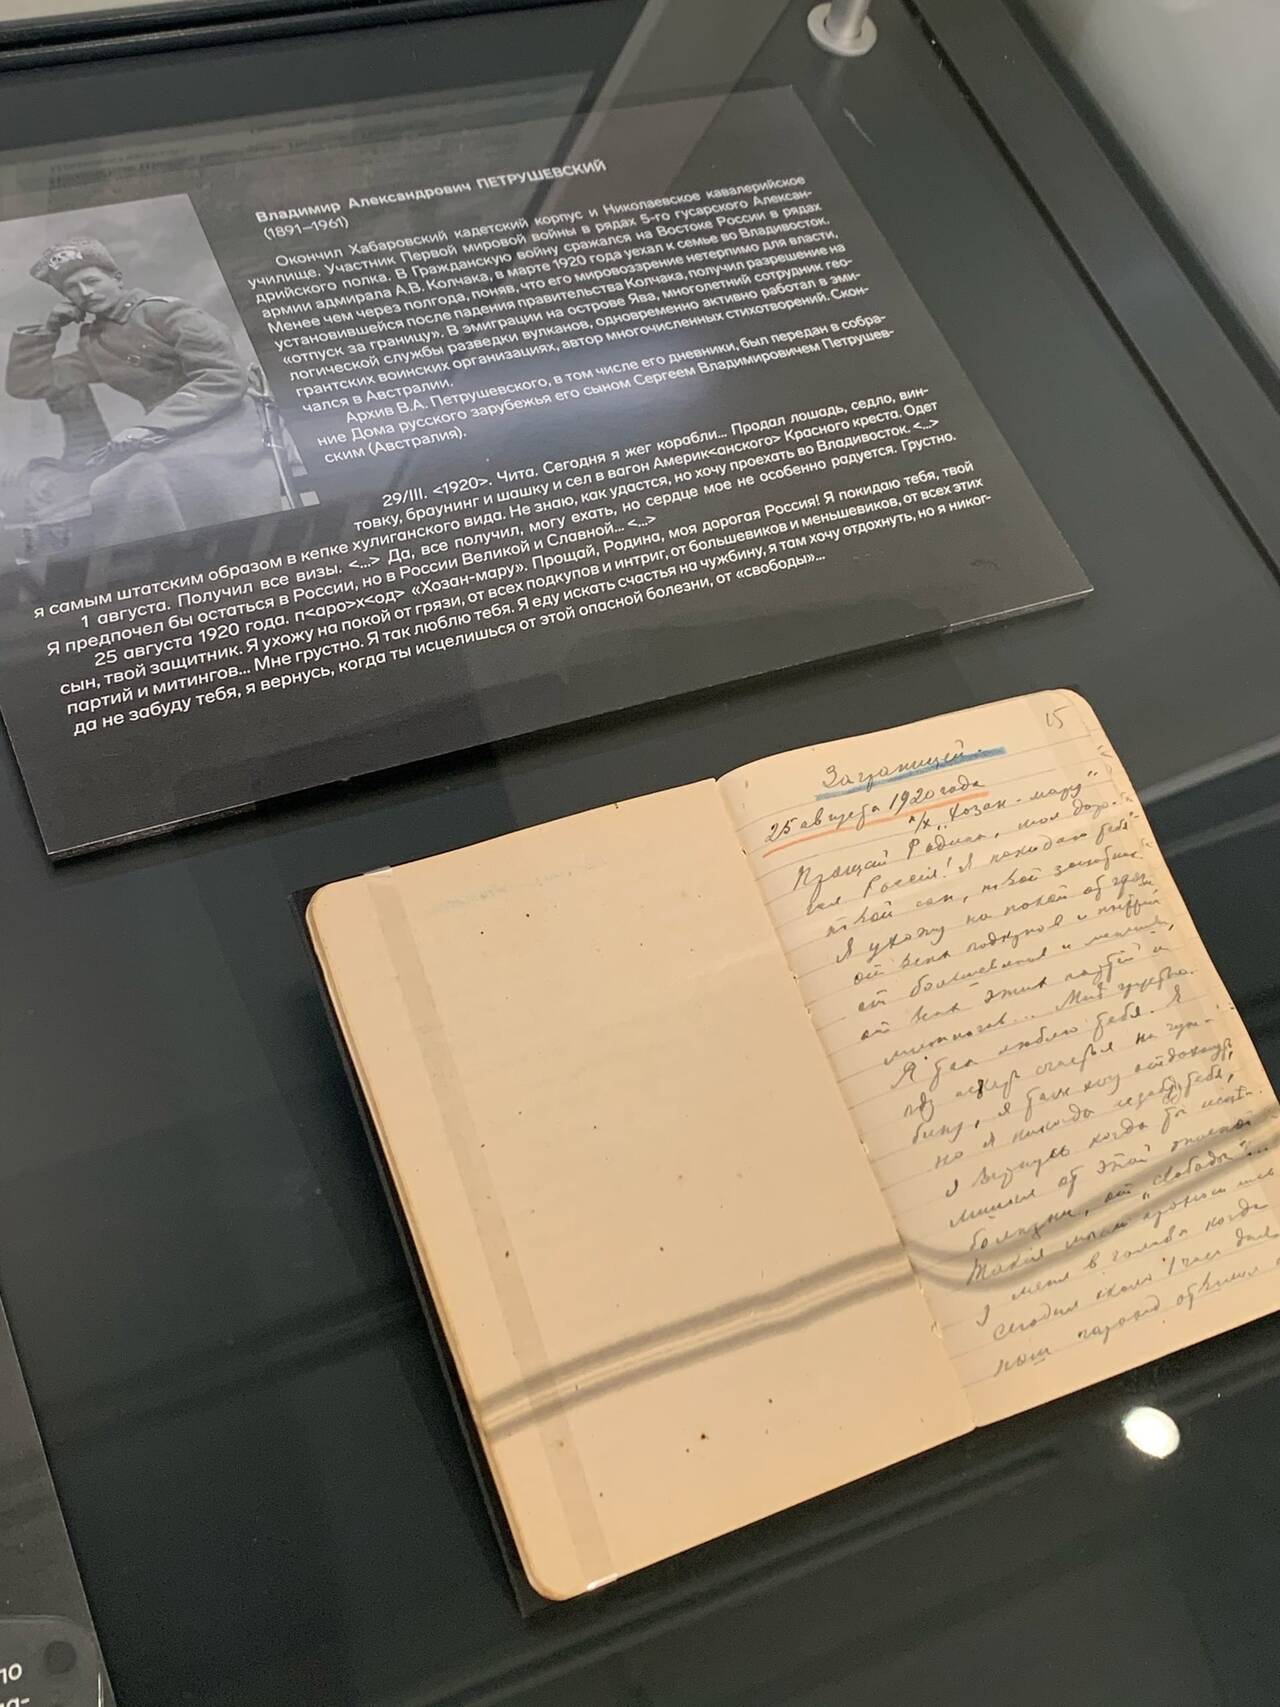 Владимир Александрович ПЕТРУШЕВСКИЙ
(1891–1961)
Окончил Хабаровский кадетский корпус и Николаевское кавалерийское
училище. Участник Первой мировой войны в рядах 5-го гусарского Алексан-
дрийского полка. В Гражданскую войну сражался на Востоке России в рядах
армии адмирала А.В. Колчака, в марте 1920 года уехал к семье во Владивосток.
Менее чем через полгода, поняв, что его мировоззрение нетерпимо для власти,
установившейся после падения правительства Колчака, получил разрешение на
«отпуск за границу». В эмиграции на острове Ява, многолетний сотрудник гео-
логической службы разведки вулканов, одновременно активно работал в эми-
грантских воинских организациях, автор многочисленных стихотворений. Скон-
чался в Австралии.
Архив В.А. Петрушевского, в том числе его дневники, был передан в собра-
ние Дома русского зарубежья его сыном Сергеем Владимировичем Петрушев-
ским (Австралия).
29/III. <1920>. Чита. Сегодня я жег корабли... Продал лошадь, седло, вин-
товку, браунинг и шашку и сел в вагон Америк<анского> Красного креста. Одет
я самым штатским образом в кепке хулиганского вида. Не знаю, как удастся, но хочу проехать во Владивосток. <...>
1 августа. Получил все визы. <...> Да, все получил, могу ехать, но сердце мое не особенно радуется. Грустно.
Я предпочел бы остаться в России, но в России Великой и Славной... <...>
25 августа 1920 года. п<аро>х<од> «Хозан-мару». Прощай, Родина, моя дорогая Россия! Я покидаю тебя, твой
сын, твой защитник. Я ухожу на покой от грязи, от всех подкупов и интриг, от большевиков и меньшевиков, от всех этих
партий и митингов... Мне грустно. Я так люблю тебя. Я еду искать счастья на чужбину, я там хочу отдохнуть, но я никог-
да не забуду тебя, я вернусь, когда ты исцелишься от этой опасной болезни, от «свободы»...
15
Заграницей.
25 августа 1920 года
п/х „Хозан-мару"
Прощай Родина, моя доро-
гая Россія! Я покидаю тебя
твой сын, твой защитник
Я ухожу на покой от грязи
от всех подкупов и интриг
от большевиков и меньшев.
от всех этих партій и
митингов... Мне грустно.
Я так люблю тебя. Я
еду искать счастья на чуж-
бину, я там хочу отдохнуть,
но я никогда не забуду тебя,
я вернусь когда ты исце-
лишься от этой опасной
болезни, от „свободы"...
Такія мысли
у меня в голове когда
сегодня около 1 часа дня
наш пароход отвалил
10